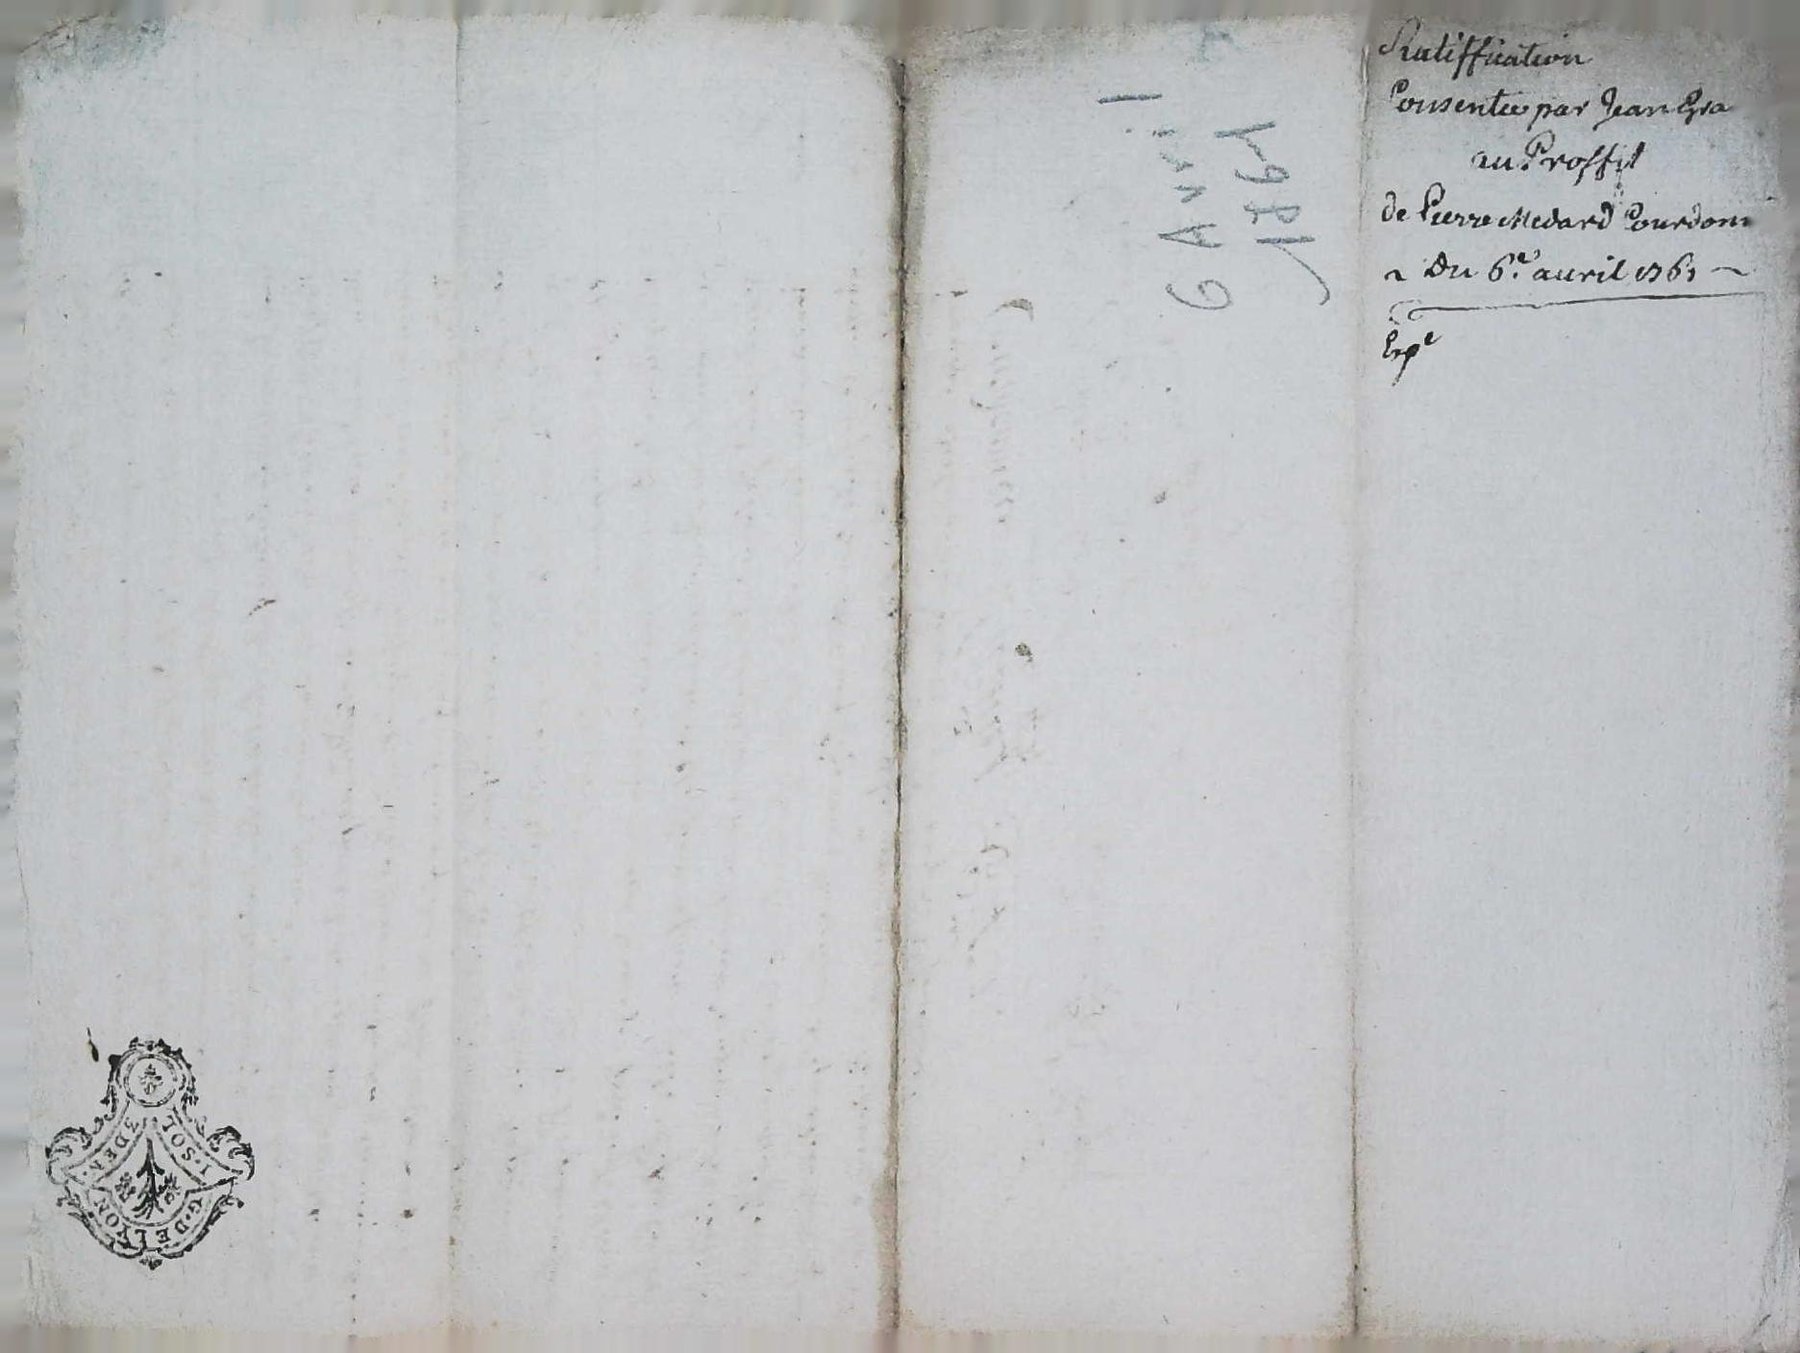 Ratiffication
Consentie par Jean Gra
au Proffit
de Pierre Medard Courdon
Du 6.e avril 1761
Expe
6 Avril
1761
1·SOL·
3DEN·
G·DE LYON